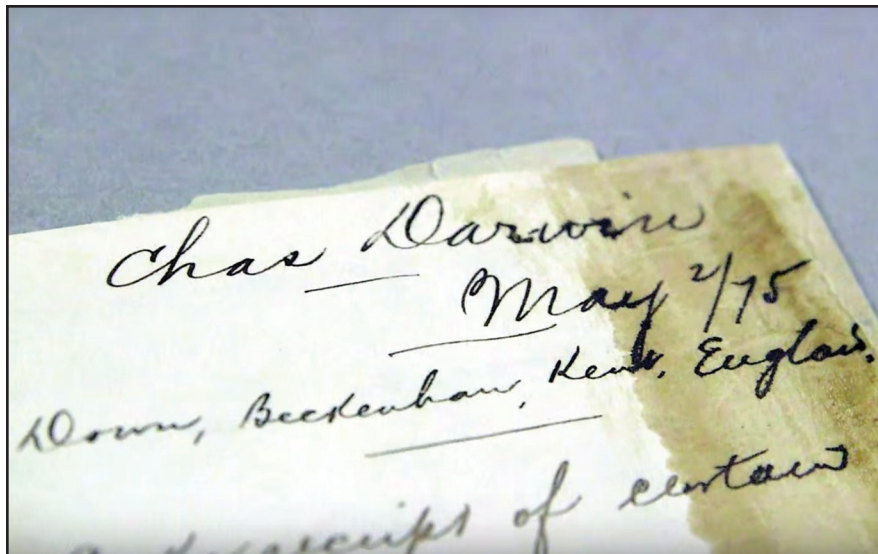 Chas Darwin
May 2/75
Down, Beckenham, Kent, England.
of certain